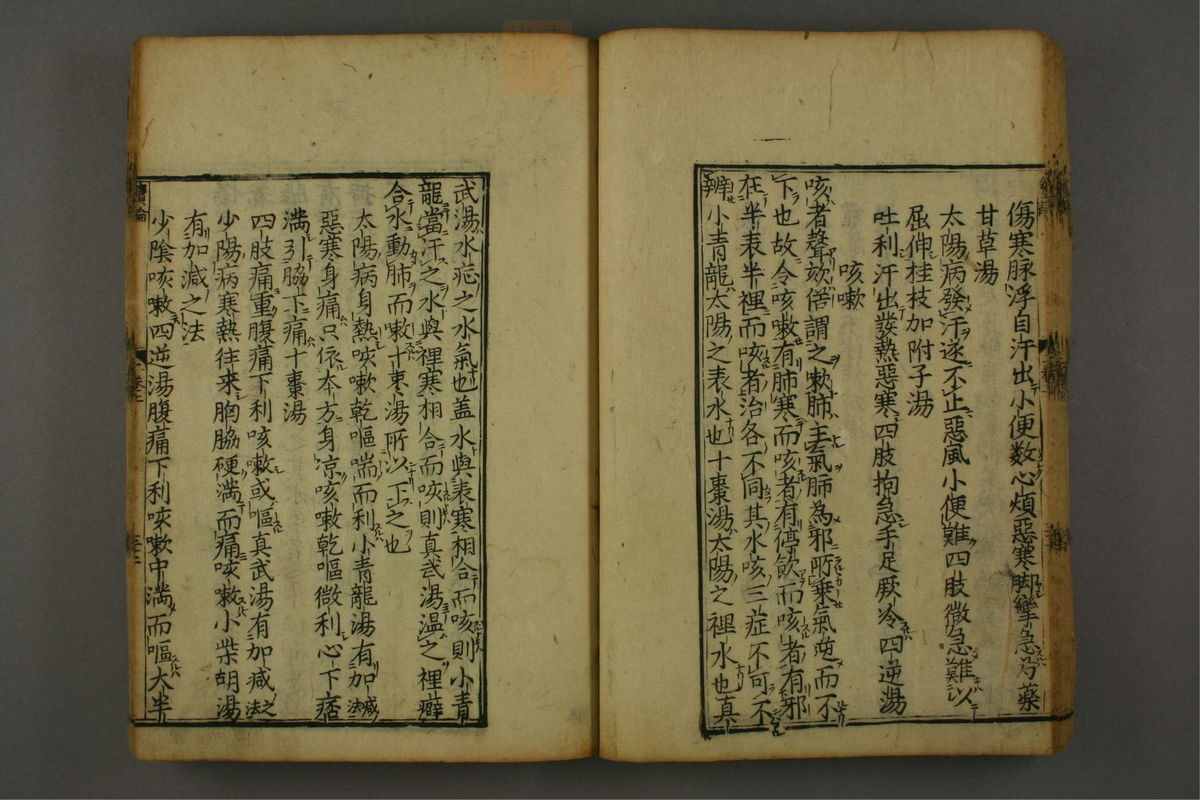 傷寒脉浮自汗出小便数心煩惡寒脚攣急芍藥
甘草湯
太陽病發汗遂不止惡風小便難四肢微急難以
屈伸桂枝加附子湯
吐利汗出發熱惡寒四肢拘急手足厥冷四逆湯
咳嗽
咳者聲欬俗謂之嗽肺主氣肺為邪所乗氣逆而不
下也故令咳嗽有肺寒而咳者有停飲而咳者有邪
在半表半裡而咳者治各不同其水咳三症不可不
辨小青龍太陽之表水也十棗湯太陽之裡水也真
武湯水疟之水氣也盖水與表寒相合而咳則小青
龍當汗之水與裡寒相合而咳則真武湯温之裡癖
合水動肺而嗽十枣湯所以下之也
太陽病身熱咳嗽乾嘔喘而利小青龍湯有加减法
惡寒身痛只依本方身凉咳嗽乾嘔微利心下痞
満引脇下痛十棗湯
四肢痛重腹痛下利咳嗽或嘔真武湯有加减之法
少陽病寒熱往来胸脇硬満而痛咳嗽小柴胡湯
有加减之法
少陰咳嗽四逆湯腹痛下利咳嗽中満而嘔大半